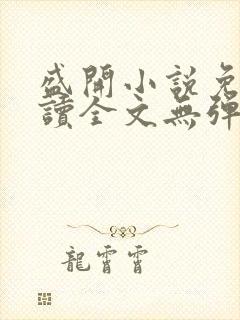 盛開小說免
讀全文無彈
龍霄霄